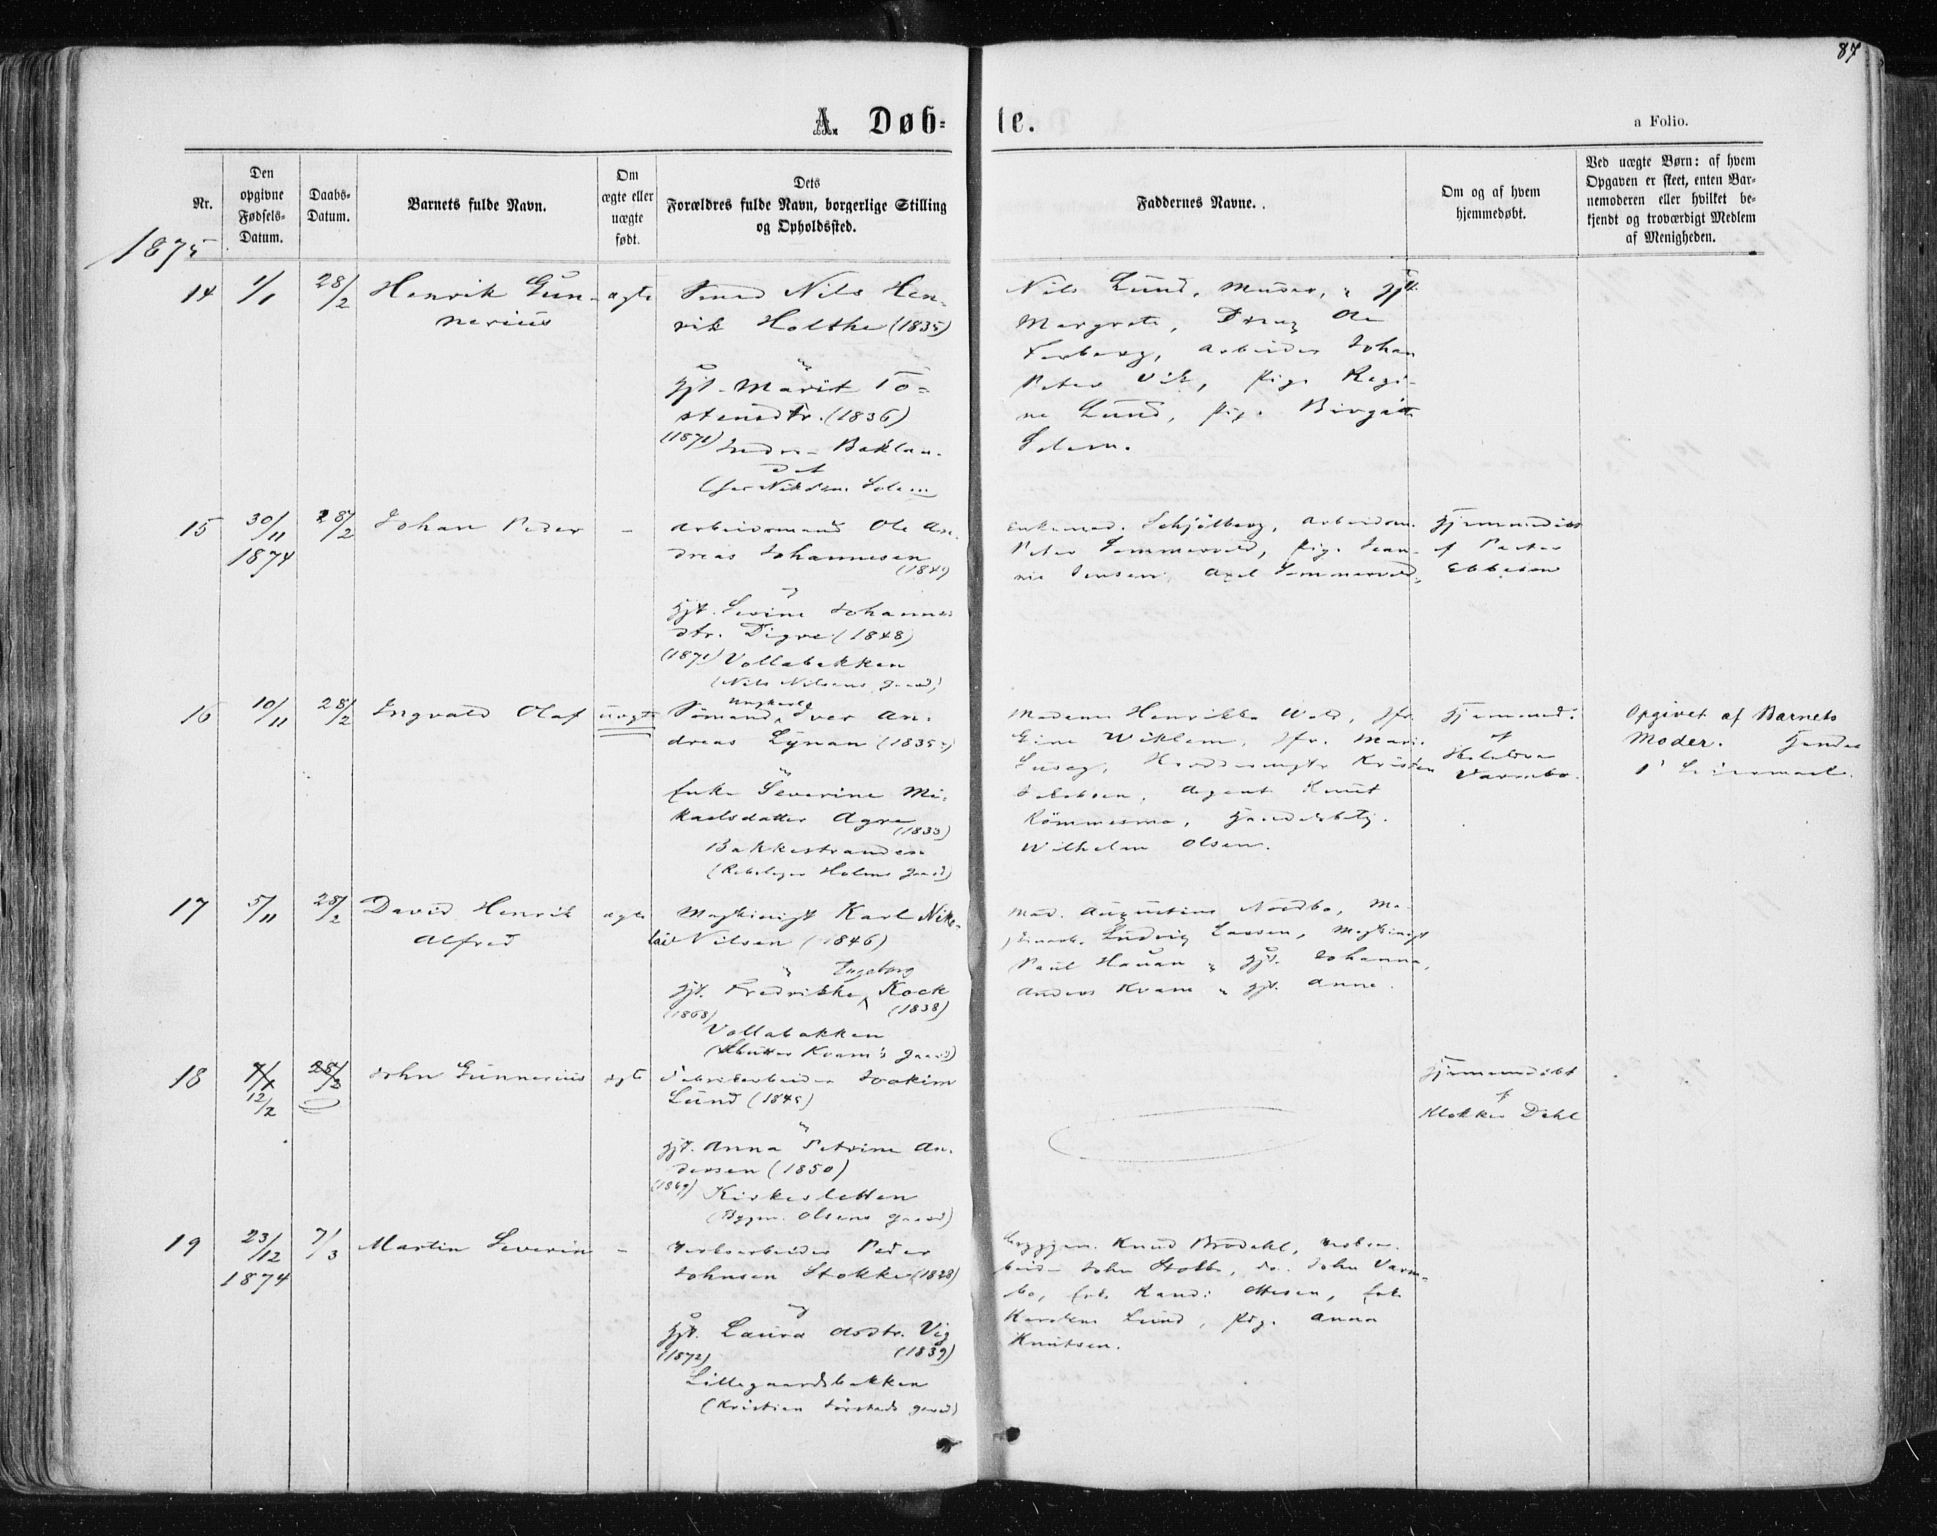 87
A. Døb-
te.
a Folio.
Nr.
Den
opgivne
Fødsels-
Datum.
Daabs-
Datum.
Barnets fulde Navn.
Om
ægte eller
uægte
født.
Dets
Forældres fulde Navn, borgerlige Stilling
og Opholdssted.
Faddernes Navne.
Om og af hvem
hjemmedøbt.
Ved uægte Børn: af hvem
Opgaven er skeet, enten Bar-
nemoderen eller hvilket be-
kjendt og troværdigt Medlem
af Menigheden.
1875
14
1/1
28/2
Henrik Gun-
nerius
ægte
Smed Nils Hen-
rik Holthe (1835)
og
Hjt. Marit To-
stensdtr. (1836)
(1871)
Indre Baklan-
det
Nils Lund, Murer, og Hjt.
Margrete, Dreng Ole
Arbeider Johan
Peter Vik, Pige Regi-
ne Lund, Pige Birgitte
Solem.
15
30/11
1874
28/2
Johan Peder
-
Arbeidsmand Ole An-
dreas Johannesen
(1849
og
Hjt. Sevine Johannes
dtr. Digre (1848)
(1871) Vollabakken
(Nils Nilsens Gaard)
Enkemad. Schjølberg, Arbeidsm.
Peter Sommervold, Pige Jean-
nie Jensen, Axel Sommervold.
Hjemmedøbt
af Pastor
Ebbesen
16
10/11
28/2
Ingvald Olaf
uægte
Ungkarl
Sömand Iver An-
dreas Lynan (1835)
og
Enke Severine Mi-
kaelsdatter Agre
(1833)
Bakkestranden
(Rebslager Holms Gaard)
Madame Henrikke Wold, Jfr.
Gine Wiklem, Jfr. Marie
Kristen
Jakobsen, Agent Knut
Römmesmo, Handelsbetj.
Wilhelm Olsen.
Hjemmed.
af
Varmbo.
Opgivet af Barnets
Moder. Hendes
1ste Leiermaal.
17
5/11
28/2
David Henrik
Alfred
ægte
Maskinist Karl Niko-
lai Nilsen (1846)
og Ingeborg
Hjt. Fredrikke Kock
(1868) (1838)
Vollabakken
(Skutter Kvam's Gaard)
Mad. Augustine Nordbo, Ma-
Ludvig Larsen, Maskinist
Paul Hauan og Hjt. Johanna,
Anders Kvam og Hjt. Anne.
18
7/1
12/2
28/2
John Gunnerius
ægte
Fabrikarbeider Joakim
Lund (1845)
og
Hjt. Anna Petrine An-
dersen (1850)
(1869) Kirkesletten
(Bygm. Olsens Gaard)
Hjemmedøbt
af
Klokker Dahl
19
23/12
1874
7/3
Martin Severin
-
Verksarbeider Peder
Johnsen Stokke (1828)
og
Hjt. Laura Asdtr. Vig
(1872) (1839)
Lillegaardsbakken
(Kristian Sörstads Gaard)
Bryggem. Knud Brodahl,
John Stolbo, do. John Varm-
bo, Enke Randi Ottesen, Enke
Lund, Pige Anna
Knutsen.